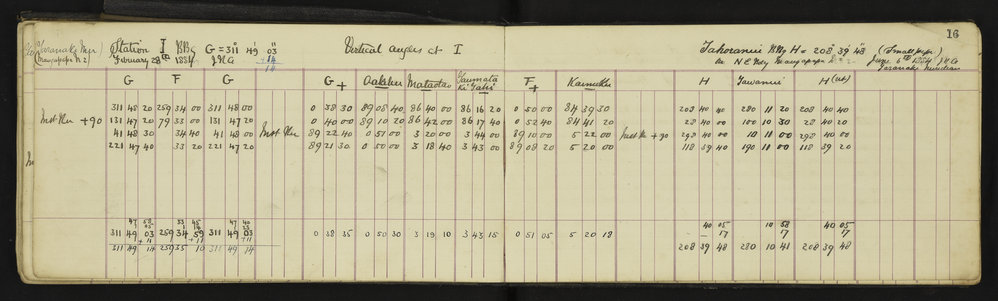 16
(Taranaki Mer Station I BBG G = 311° 49' 03" Vertical angles at I Tahoranui BBG H = 208° 39' 48" (Small
February 28th 1884 J.H.G +14
14 June 6th 1884 J.H.G
Taranaki Meridian
G F G G + Oakden Matatao Taumata Ki Tahi F + Kaimuku H Tawamui H
311 48 20 259 34 00 311 48 00 0 38 30 89 08 40 86 40 00 86 16 20 0 50 00 84 39 30 208 40 40 280 11 20 208 40 40
Inst Ther +90 131 47 20 79 33 00 131 47 20 0 40 00 89 10 20 86 42 00 86 17 40 0 52 40 84 41 20 28 40 00 100 10 30 28 40 20
41 48 30 34 40 41 48 00 Inst Ther 89 22 40 0 51 00 3 20 00 3 44 00 89 10 00 5 22 00 Inst Th +90 298 40 00 10 11 00 298 40 00
221 47 40 33 20 221 47 20 89 21 30 0 50 00 3 18 40 3 43 00 89 08 20 5 20 00 118 39 40 190 11 00 118 39 20
47 58 33 45 47 40 40 05 10 58 40 05
311 49 03 259 34 59 311 49 03 0 38 35 0 50 30 3 19 10 3 43 15 0 51 05 5 20 18 17 17 17
+11 +11 +11
311 49 14 259 35 10 311 49 14 208 39 48 280 10 41 208 39 48